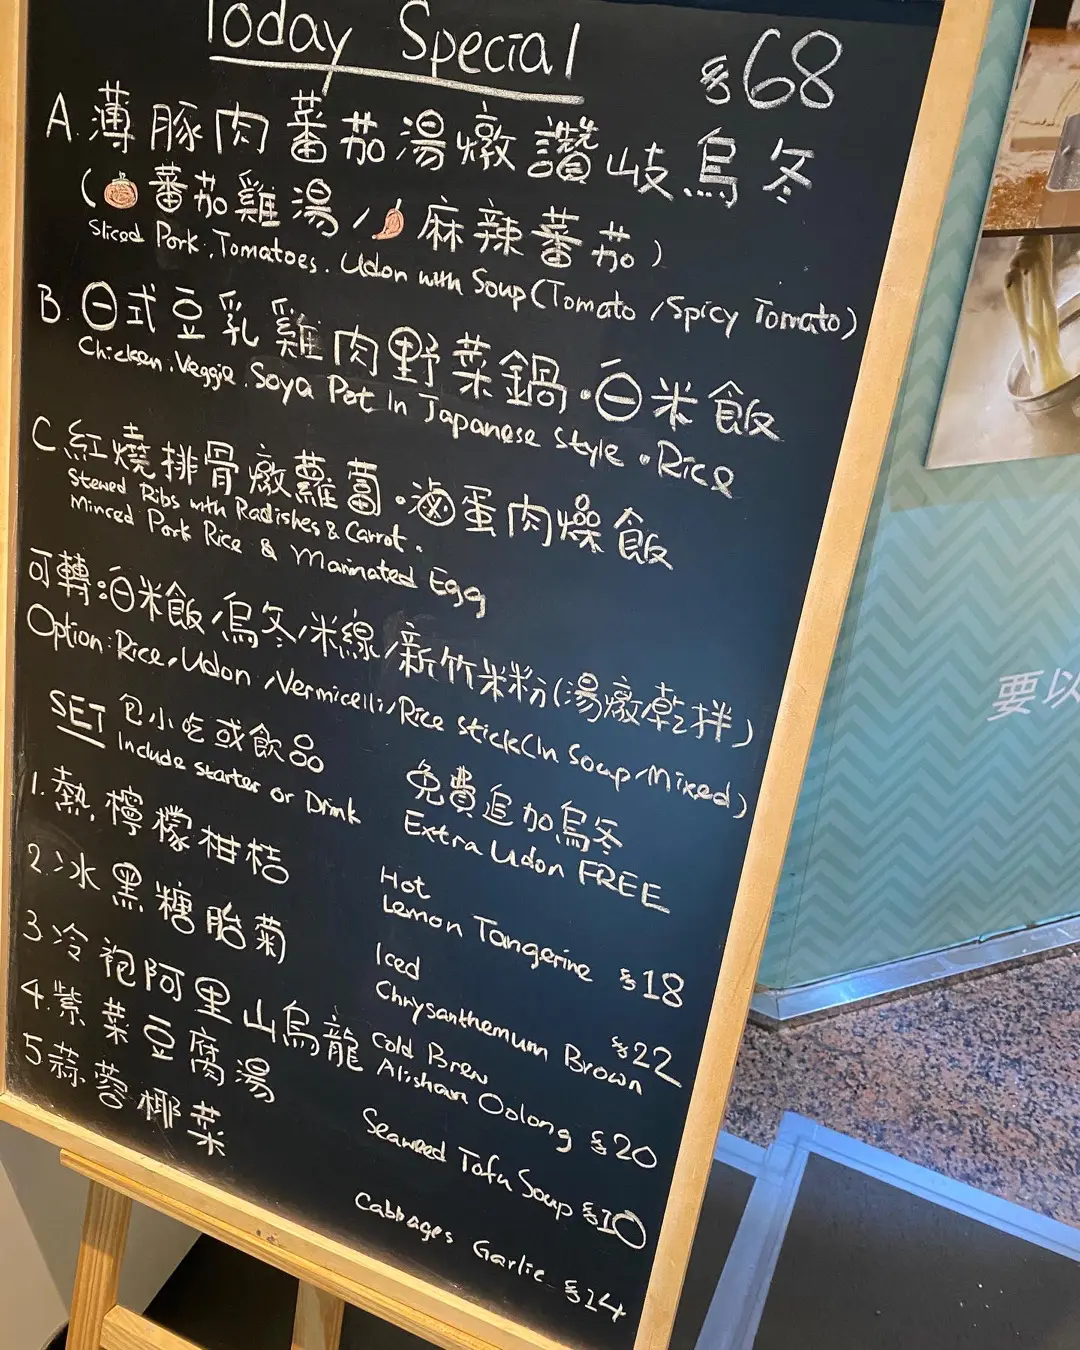 Today Special $68
A. 薄豚肉蕃茄湯燉讚岐烏冬
(蕃茄雞湯/麻辣蕃茄)
Sliced Pork, Tomatoes. Udon with Soup (Tomato / Spicy Tomato)
B. 日式豆乳雞肉野菜鍋・白米飯
Chicken. Veggie. Soya Pot In Japanese Style • Rice
C 紅燒排骨燉蘿蔔・滷蛋肉燥飯
Stewed Ribs with Radishes & Carrot.
Minced Pork Rice & Marinated Egg
可轉:白米飯/烏冬/米線/新竹米粉(湯燉/乾拌)
Option: Rice/Udon/Vermicelli/Rice stick(In Soup/Mixed)
SET 包小吃或飲品
Include starter or Drink
免費追加烏冬
Extra Udon FREE
1. 熱檸檬柑桔
Hot
Lemon Tangerine $18
2. 冰黑糖胎菊
Iced
Chrysanthemum Brown $22
3 冷袍阿里山烏龍
Cold Brew
Alishan Oolong $20
4. 紫菜豆腐湯
Seaweed Tofu Soup $10
5 蒜蓉椰菜
Cabbages Garlic $14
要以